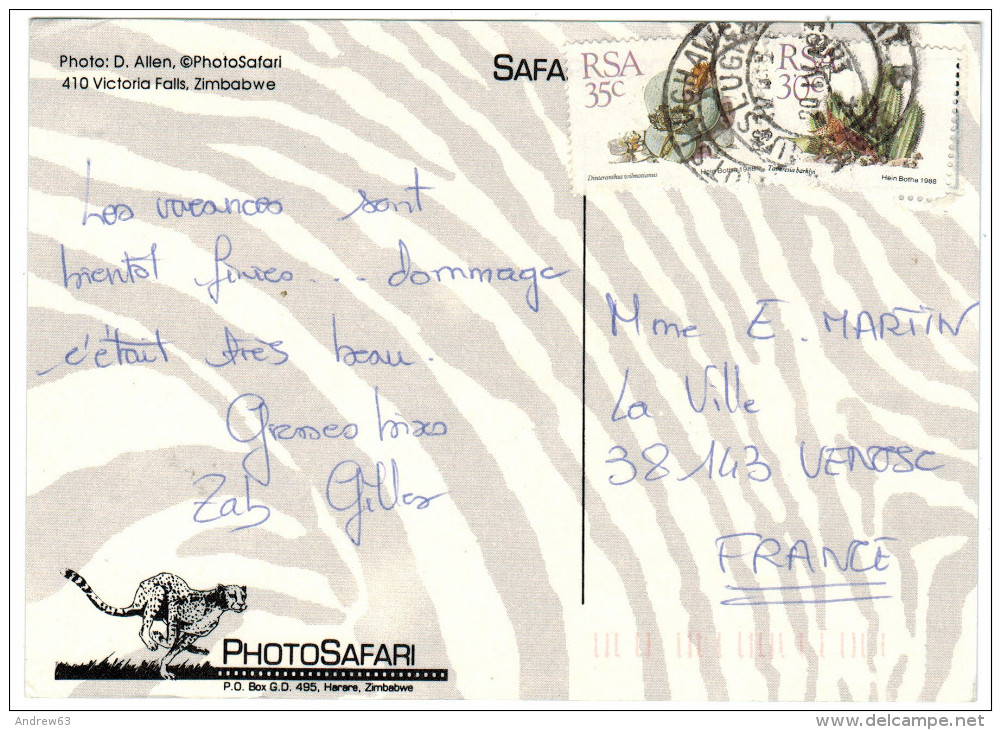 Photo: D. Allen, ©PhotoSafari
410 Victoria Falls, Zimbabwe
SAFA
RSA
35c
Dinteranthus wilmotianus
Hein Botha 1988
RSA
30c
Hein Botha 1988
Les vacances sont
bientôt finies... dommage
c'était très beau.
Grosses bises
Zab Gilles
Mme E. MARTIN
La Ville
38 143 VENOSC
FRANCE
PHOTOSAFARI
P.O. Box G.D. 495, Harare, Zimbabwe
Andrew63
www.delcampe.net